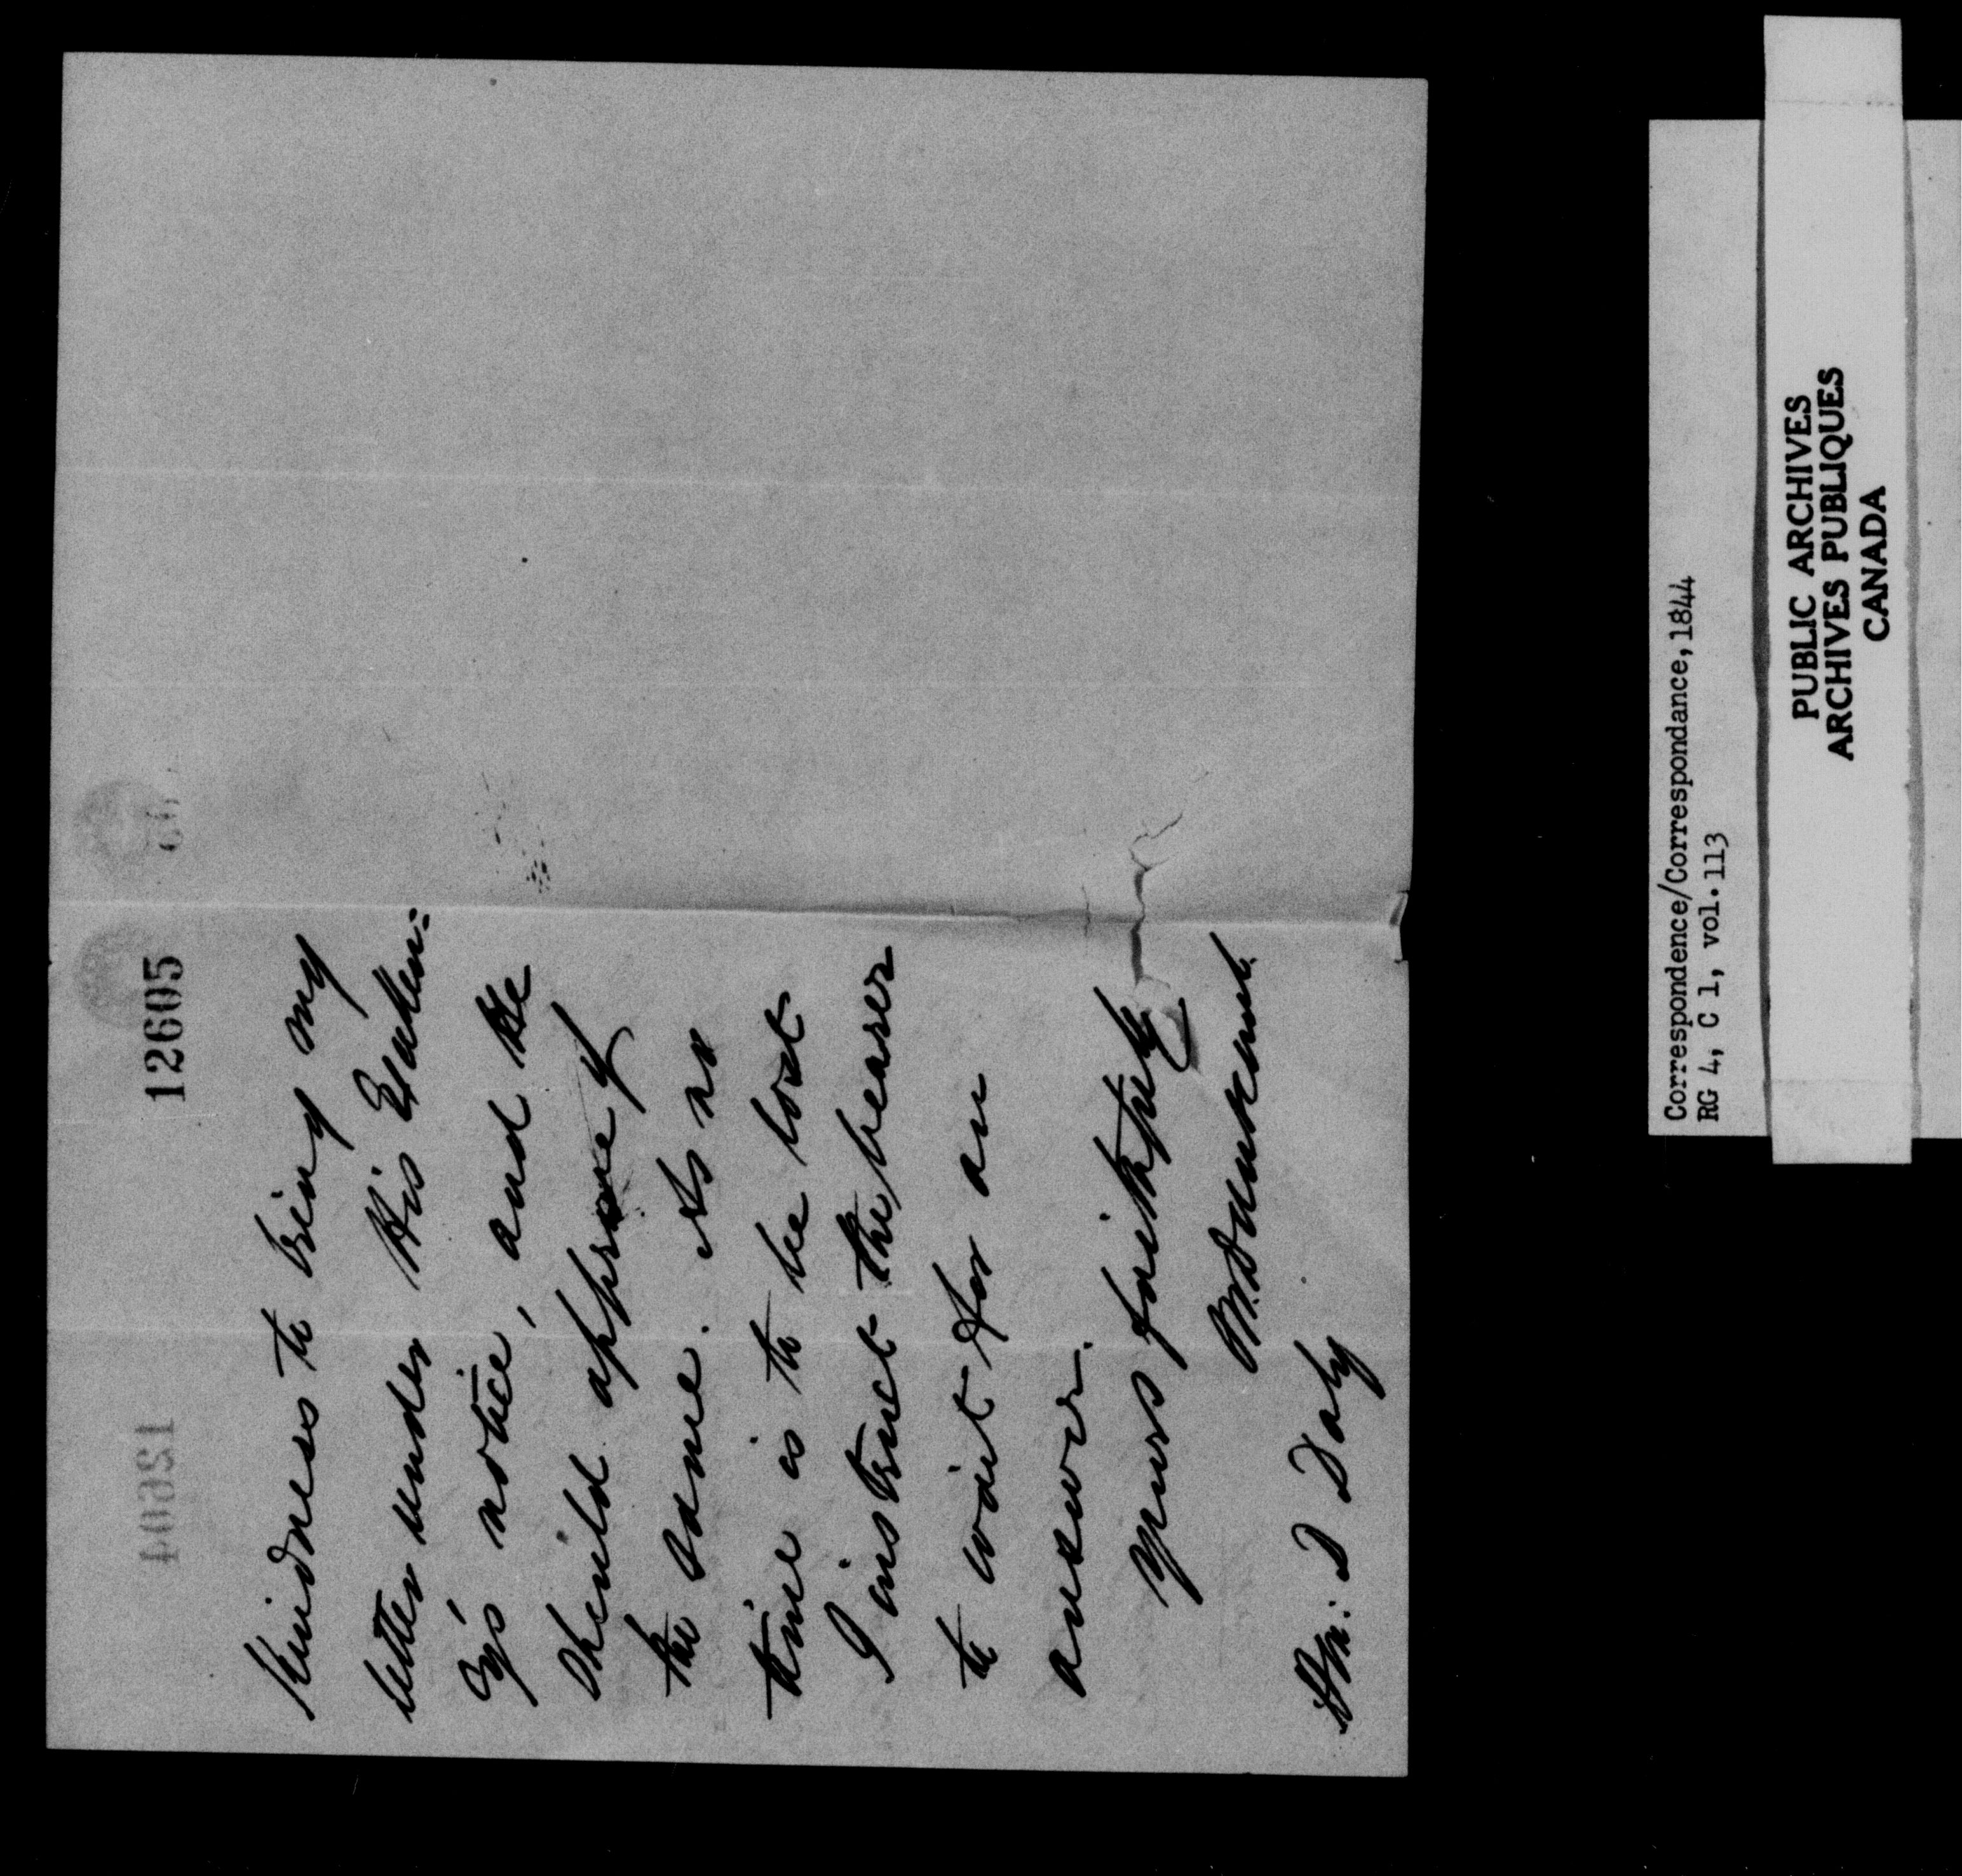 12605
12604
Kindness to bring my
letter under His Excellen=
cy's notice, and He
should approve of
the same. As no
time is to be lost
I instruct the bearer
to wait for an
answer.
yours faithfully
Hon: D Daly
Correspondence/Correspondance, 1844
RG 4, C 1, vol. 113
PUBLIC ARCHIVES
ARCHIVES PUBLIQUES
CANADA